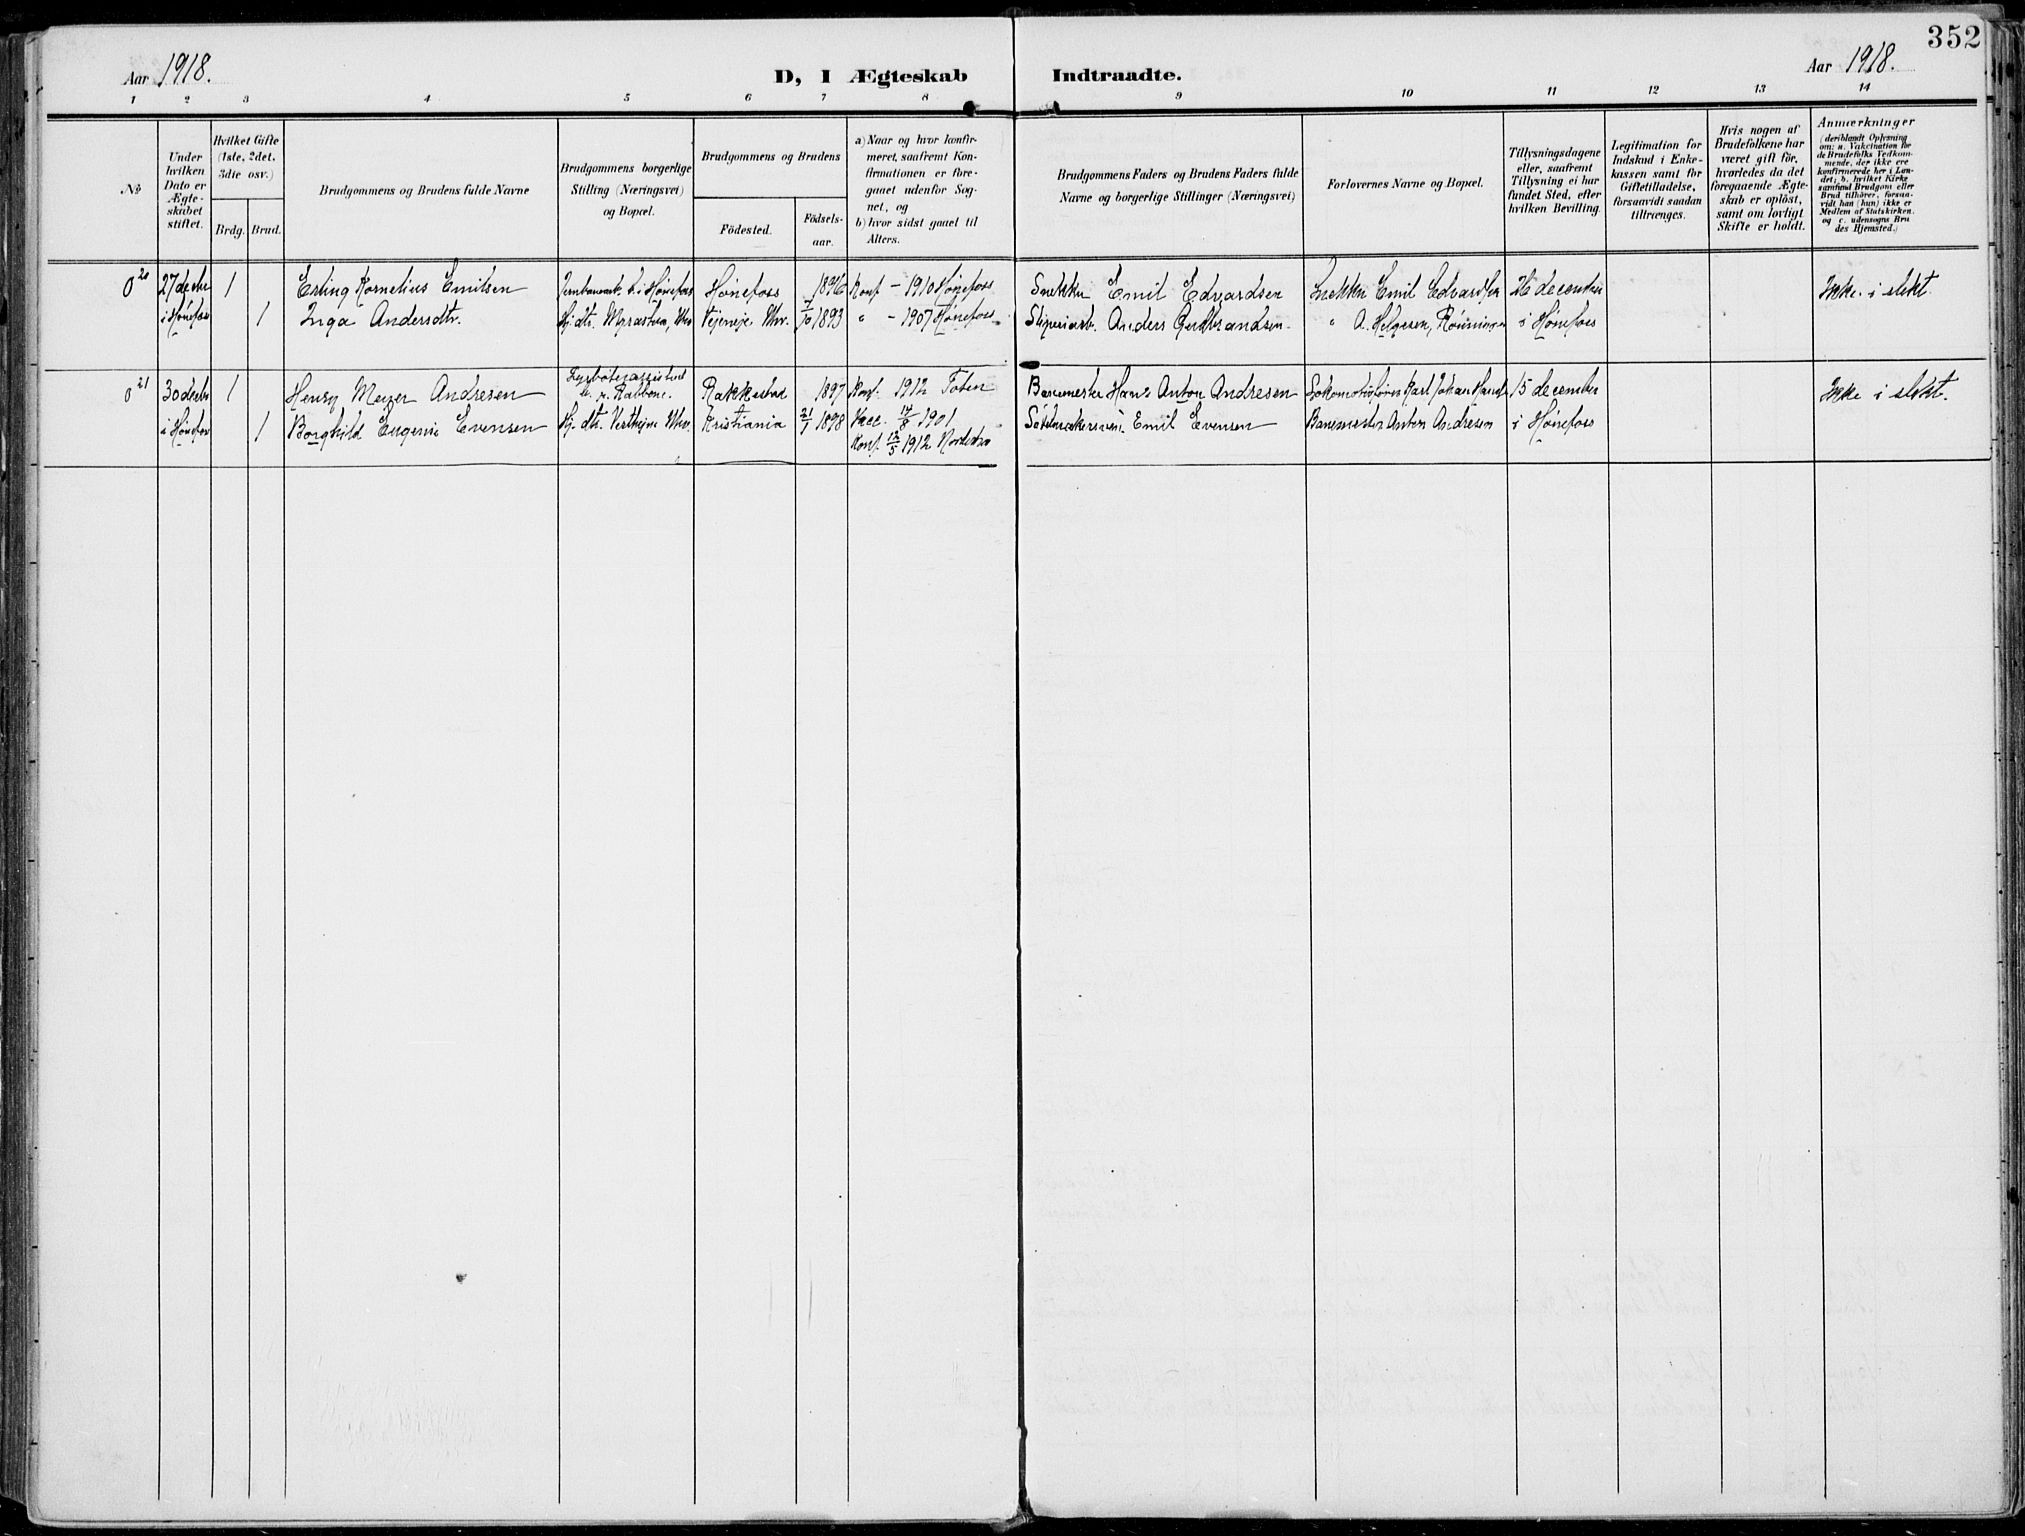 352
Aar 1918.
D, I Ægteskab Indtraadte.
Aar 1918.
1 2 3 4 5 6 7 8 9 10 11 12 13 14
No
Under hvilken Dato er Ægteskabet stiftet.
Hvilket Gifte (1ste, 2det, 3die osv.)
Brdg. Brud.
Brudgommens og Brudens fulde Navne
Brudgommens borgerlige Stilling (Næringsvei) og Bopæl.
Brudgommens og Brudens
Födested.
Födsels-aar.
a) Naar og hvor konfirmeret, saafremt Konfirmationen er foregaaet udenfor Sognet, og
b) hvor sidst gaaet til Alters.
Brudgommens Faders og Brudens Faders fulde Navne og borgerlige Stillinger (Næringsvei)
Forlovernes Navne og Bopæl.
Tillysningsdagene eller, saafremt Tillysning ei har fundet Sted, efter hvilken Bevilling.
Legitimation for Indskud i Enkekassen samt for Giftetilladelse, forsaavidt saadan tillrænges.
Hvis nogen af Brudefolkene har været gift för, hvorledes da det foregaaende Ægteskab er oplöst, samt om lovligt Skifte er holdt.
Anmærkninger (deriblandt Oplysning om: a. Vakcination for de Brudefolks Vedkommende, der ikke ere konfirmerede her i Landet; b. hvilket Kirkesamfund Brudgom eller Brud tilhører, forsaavidt han (hun) ikke er Medlem af Statskirken, og c. udensogns Brudes Hjemsted.)
20 27 decbr 1 Erling Kornelius Emilsen i Hønefoss Hønefoss 1896 Konf - 1910 Hønefoss Snekker Emil Edvardsen Snekker Emil Edvardsen 26 december Ikke i slekt
i Hønefoss 1 Inga Andersdtr. Hj. dtr. 7/10 1893 " - 1907 Hønefoss Sliperiarb. Anders Gudbrandsen " A. Helgesen, Rönningen i Hønefoss
21 30 decbr 1 Henry Meyer Andresen Rakkestad 1897 Konf. 1912 Toten Banemester Hans Anton Andresen Karl Johan 15 december Ikke i slekt.
i Hønefoss 1 Borghild Eugenie Evensen Hj. dtr. Kristiania 21/1 1898 Vacc. 17/8 1901 Emil Evensen Banemester Anton Andresen i Hønefoss
Konf. 12/5 1912